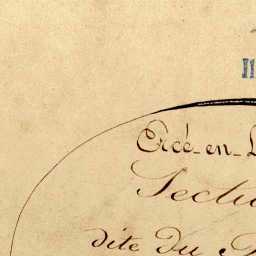 Ercé-en-L
Sectio
dite du